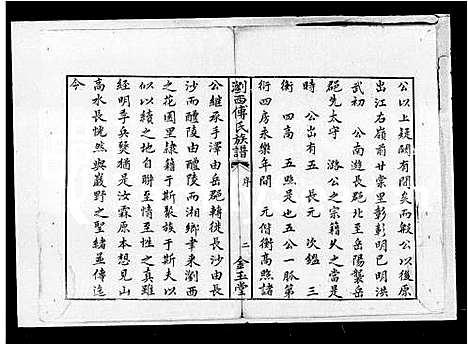 公以上疑闕有間矣而般公以後原
出江右嶺前甘棠里彰彰明已明洪
武初 公南遊長郡北至岳陽襲岳
郡先太守 潞公之宗籍久之當是
時 公出有五 長元 次鑑 三
衡 四高 五熙是也五公一脈第
衍四房永樂年間 元付衡高熙諸
瀏西傅氏族譜 序 二 金玉堂
公維承手澤由岳郡轉徙長沙由長
沙而醴陵由醴陵而湘鄉聿來瀏西
之花園里隸籍于斯聚族于斯夫以
似以續之地自聯至情至性之真雖
經明季兵燹猶是汝霖原本想見山
高水長恍然與巖野之聖緒並傳迄
今